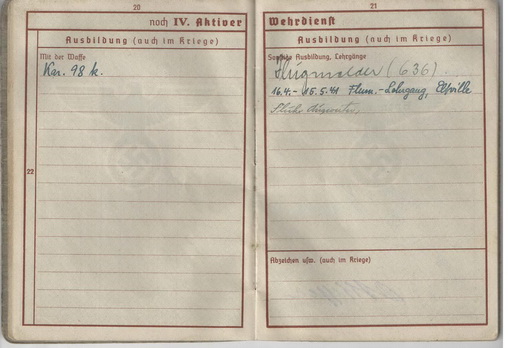 20
noch IV. Aktiver
Ausbildung (auch im Kriege)
Mit der Waffe
Kar. 98 k.
22
21
Wehrdienst
Ausbildung (auch im Kriege)
Sonstige Ausbildung, Lehrgänge
Flugmelder (636)
16.4.- 15.5.41 Flum.-Lehrgang,
Abzeichen usw. (auch im Kriege)